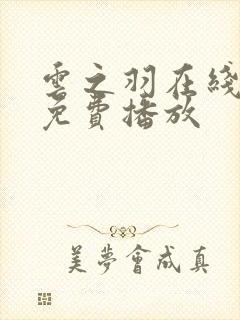 雲之羽在綫
免費播放
美夢會成真